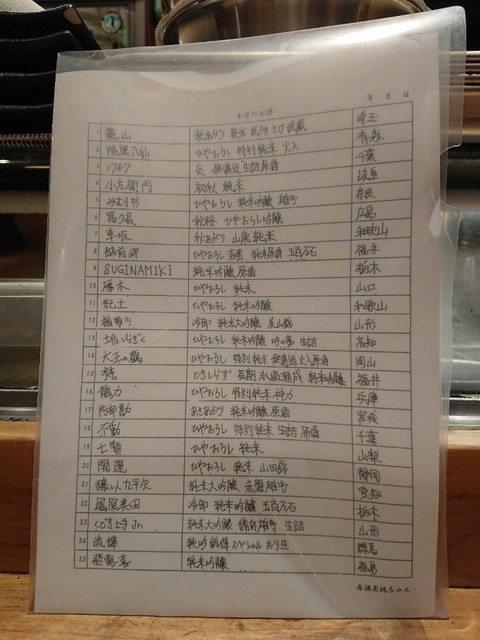 年 月 日
本日のお酒
1 鏡山 秋あがり 純米 武州 さけ武蔵 埼玉
2 陸奥八仙 ひやおろし 特別純米 火入 青森
3 1787 無濾過 生詰原酒 千葉
4 小左衛門 初秋 純米 岐阜
5 みむろ杉 ひやおろし 純米吟醸 雄町 奈良
6 富久長 秋桜 ひやおろし吟醸 広島
7 車坂 秋あがり 山廃純米 和歌山
8 越前岬 ひやおろし 純米原酒 五百万石 福井
9 SUGINAMIKI 純米吟醸原酒 栃木
10 雁木 ひやおろし 純米 山口
11 紀土 ひやおろし 純米吟醸 和歌山
12 楯野川 冷卸 純米大吟醸 美山錦 山形
13 土佐しらぎく ひやおろし 純米吟醸 吟の夢 生詰 高知
14 大正の鶴 ひやおろし 特別純米 無濾過 火入原酒 岡山
15 梵 ときしらず 長期氷温熟成 純米吟醸 福井
16 ひやおろし 特別純米 神力 兵庫
17 阿部勘 あきあがり 純米吟醸 原酒 宮城
18 不動 ひやおろし 特別純米 生詰 原酒 千葉
19 七賢 ひやおろし 純米 山梨
20 開運 ひやおろし 純米 山田錦 静岡
21 醸し人九平次 純米大吟醸 雄町 愛知
22 鳳凰美田 冷卸 純米吟醸 五百万石 栃木
23 くどき上手Jr. 純米大吟醸 備前雄町 生詰 山形
24 流輝 純吟 スペシャル おり生 群馬
25 飛露喜 純米吟醸 福島
居酒屋純ちゃん